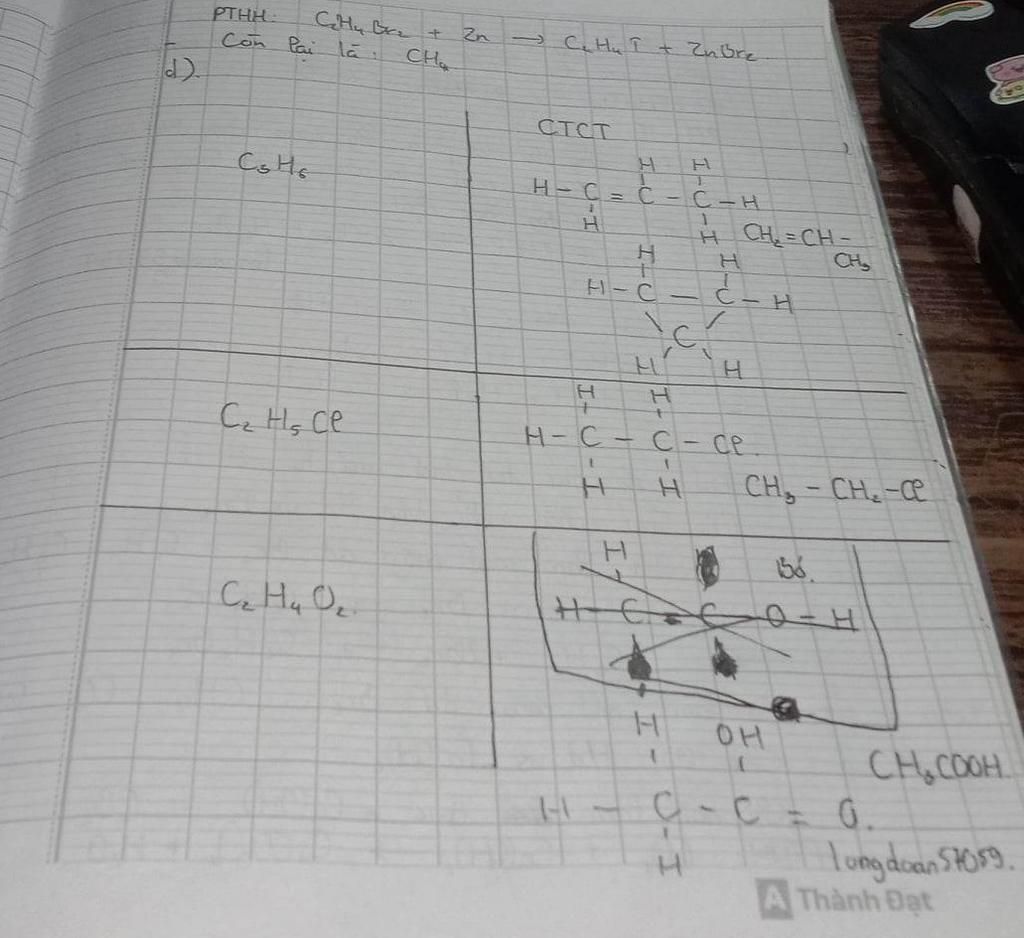 PTHH: C₂H₄Br₂ + Zn → C₂H₄↑ + ZnBr₂
Còn lại là: CH₄
d).
CTCT
C₃H₆
H H
H - C = C - C - H
H H CH₂ = CH -
CH₃
H H
H - C - C - H
C
H H
C₂H₅Cl
H H
H - C - C - Cl.
H H CH₃ - CH₂ - Cl
C₂H₄O₂.
H Bỏ.
H - C = C - O - H
H OH
CH₃COOH
H - C - C = O.
H
longdoan57059.
A Thành Đạt